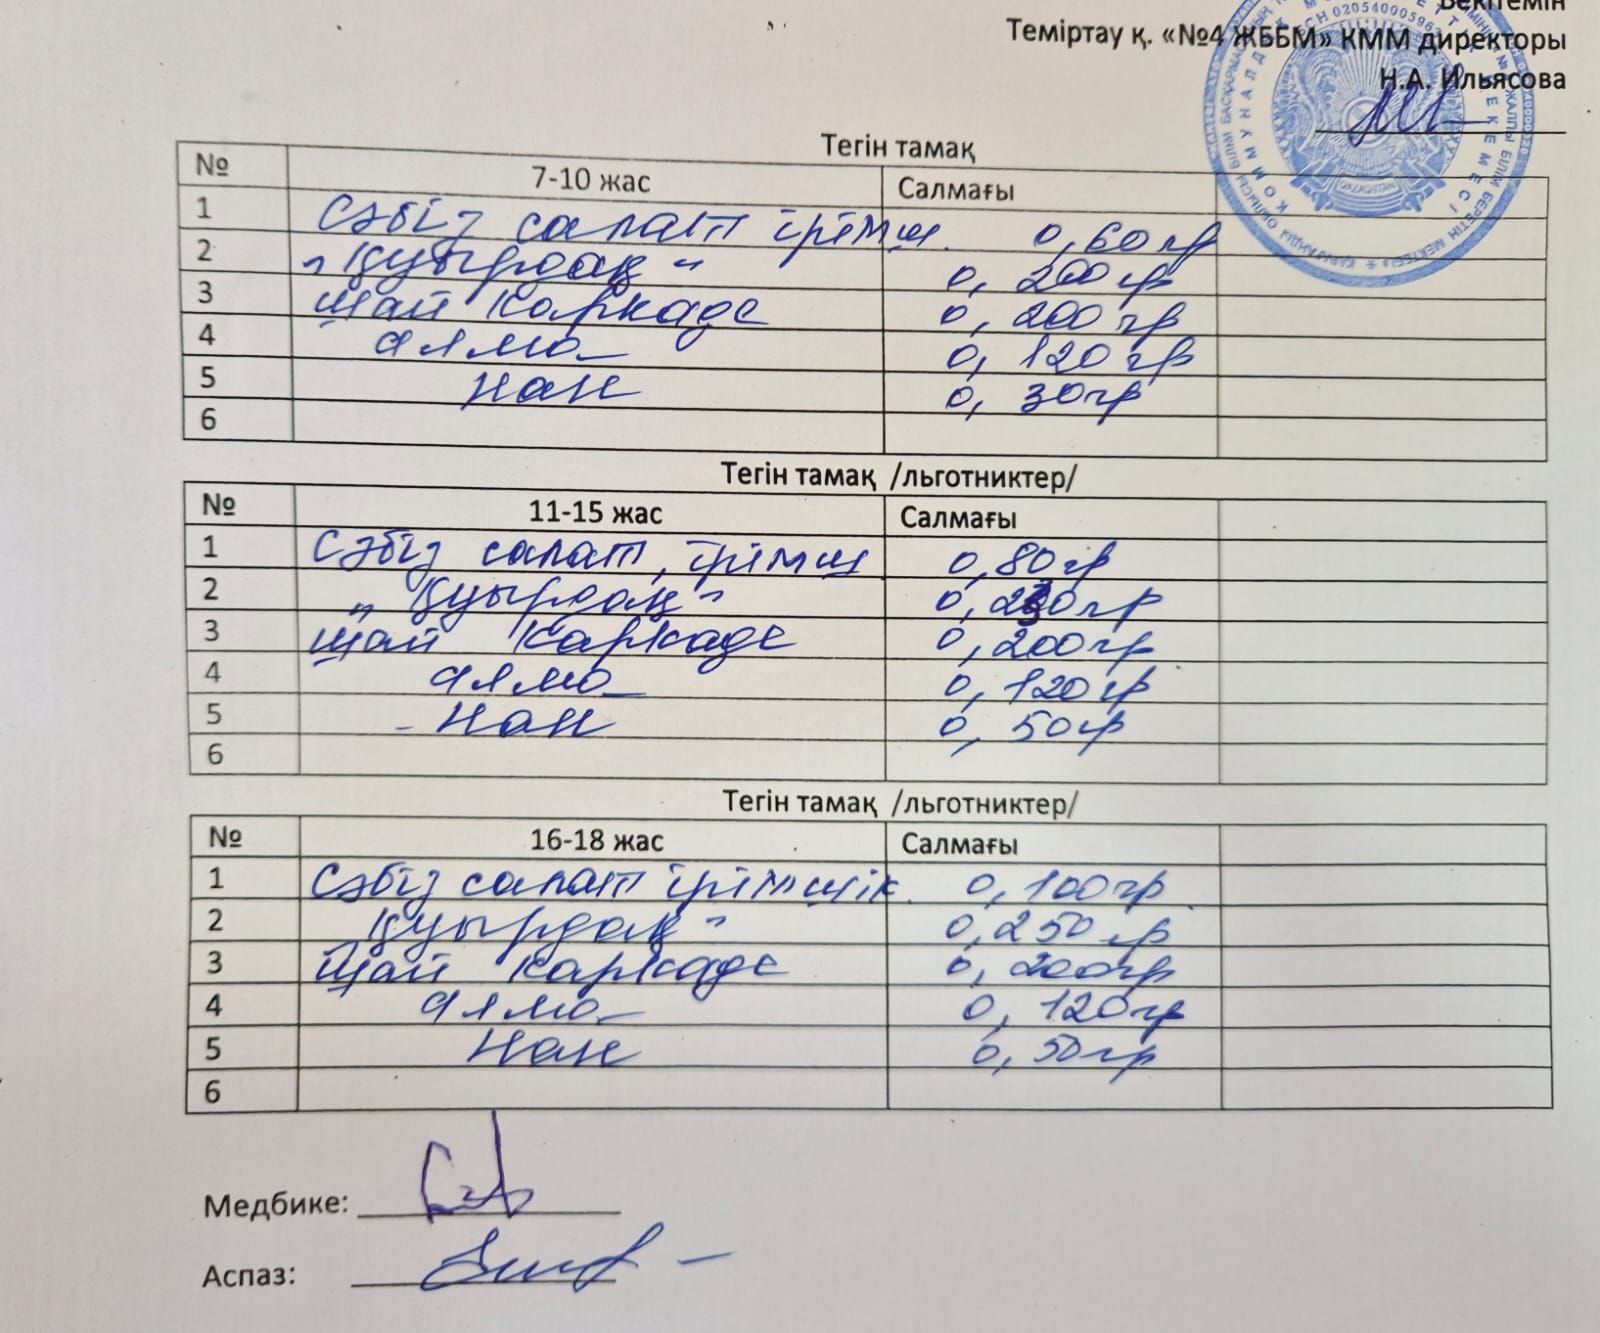 Бекітемін
Теміртау қ. «№4 ЖББМ» КММ директоры
Н.А. Ильясова
Тегін тамақ
№ 7-10 жас Салмағы
1 Сәбіз салат ірімш. 0,60гр
2 "Қуырдақ" 0,200гр
3 Шай Каркаде 0,200гр
4 алма 0,120гр
5 нан 0,30гр
6
Тегін тамақ /льготниктер/
№ 11-15 жас Салмағы
1 Сәбіз салат, ірімш 0,80гр
2 "Қуырдақ" 0,230гр
3 Шай Каркаде 0,200гр
4 алма 0,120гр
5 -нан 0,50гр
6
Тегін тамақ /льготниктер/
№ 16-18 жас Салмағы
1 Сәбіз салат ірімшік. 0,100гр
2 Қуырдақ" 0,250гр
3 Шай Каркаде 0,200гр
4 алма 0,120гр
5 нан 0,50гр
6
Медбике:
Аспаз: